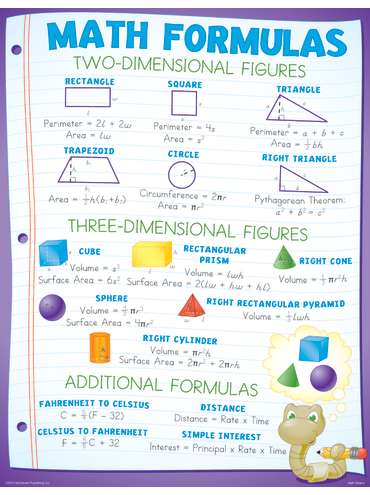 MATH FORMULAS
TWO-DIMENSIONAL FIGURES
RECTANGLE
w
l
Perimeter = 2l + 2w
Area = lw
SQUARE
s
s
Perimeter = 4s
Area = s²
TRIANGLE
a
c
h
b
Perimeter = a + b + c
Area = ½bh
TRAPEZOID
b₁
h
b₂
Area = ½h(b₁+b₂)
CIRCLE
r
Circumference = 2πr
Area = πr²
RIGHT TRIANGLE
a
c
b
Pythagorean Theorem:
a² + b² = c²
THREE-DIMENSIONAL FIGURES
CUBE
Volume = s³
Surface Area = 6s²
RECTANGULAR
PRISM
Volume = lwh
Surface Area = 2(lw + hw + hl)
RIGHT CONE
Volume = ⅓πr²h
SPHERE
Volume = 4/3πr³
Surface Area = 4πr²
RIGHT RECTANGULAR PYRAMID
Volume = ⅓lwh
RIGHT CYLINDER
Volume = πr²h
Surface Area = 2πr² + 2πrh
ADDITIONAL FORMULAS
FAHRENHEIT TO CELSIUS
C = 5/9(F − 32)
DISTANCE
Distance = Rate x Time
CELSIUS TO FAHRENHEIT
F = 9/5C + 32
SIMPLE INTEREST
Interest = Principal x Rate x Time